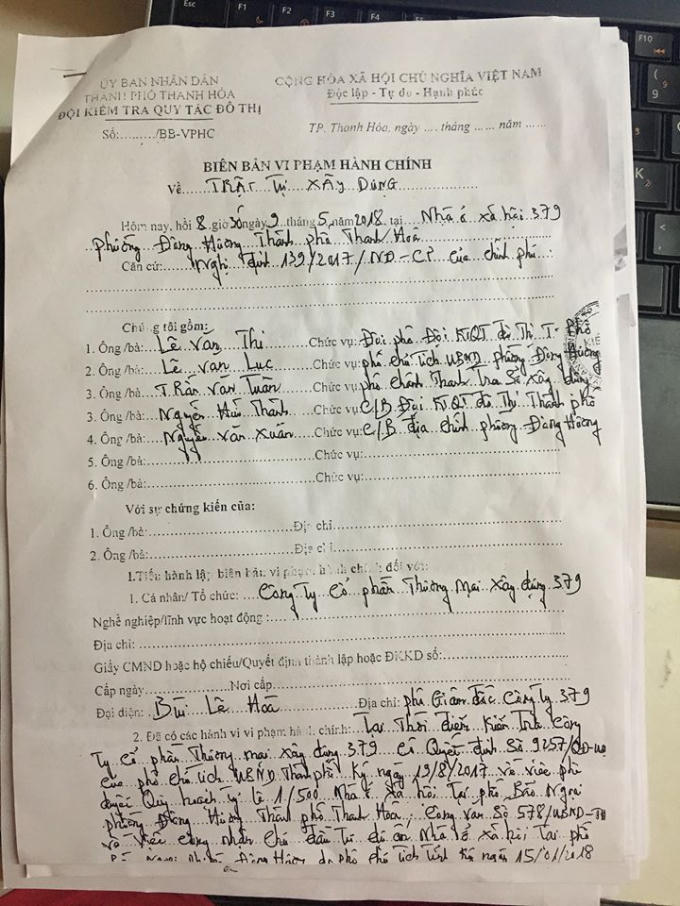 ỦY BAN NHÂN DÂN
THÀNH PHỐ THANH HÓA
ĐỘI KIỂM TRA QUY TẮC ĐÔ THỊ
Số:......../BB-VPHC
CỘNG HÒA XÃ HỘI CHỦ NGHĨA VIỆT NAM
Độc lập - Tự do - Hạnh phúc
TP. Thanh Hóa, ngày .... tháng ...... năm ......
BIÊN BẢN VI PHẠM HÀNH CHÍNH
Về Trật Tự Xây Dựng
Hôm nay, hồi 8 giờ 30 ngày 9 tháng 5 năm 2018 tại Nhà ở xã hội 379
phường Đông Hương Thành phố Thanh Hoá
Căn cứ: Nghị định 139/2017/NĐ-CP của chính phủ
Chúng tôi gồm:
1. Ông /bà: Lê Văn Thi Chức vụ: Đội phó Đội KTQT đô Thị T. Phố
2. Ông /bà: Lê Văn Lục Chức vụ: phó chủ Tịch UBND phường Đông Hương
3. Ông /bà: Trần Văn Tuấn Chức vụ: phó chánh Thanh Tra Sở Xây dựng
3. Ông /bà: Nguyễn Hữu Thành Chức vụ: C/B Đội KTQT đô Thị Thành phố
4. Ông /bà: Nguyễn Văn Xuân Chức vụ: C/B địa chính phường Đông Hương
5. Ông /bà: Chức vụ:
6. Ông /bà: Chức vụ:
Với sự chứng kiến của:
1. Ông /bà: Địa chỉ
2. Ông /bà: Địa chỉ
I.Tiến hành lập biên bản vi phạm hành chính đối với:
1. Cá nhân/ Tổ chức: Công Ty Cổ phần Thương Mại Xây dựng 379
Nghề nghiệp/lĩnh vực hoạt động :
Địa chỉ:
Giấy CMND hoặc hộ chiếu/Quyết định thành lập hoặc ĐKKD số:
Cấp ngày Nơi cấp
Đại diện: Bùi Lê Hoà Địa chỉ: phó Giám đốc Công Ty 379
2. Đã có các hành vi vi phạm hành chính: Tại Thời điểm kiểm Tra Công
Ty Cổ phần Thương mại xây dựng 379 Có Quyết định Số 9257/QĐ-UB
của phó chủ tịch UBND Thành phố Ký ngày 19/8/2017 về việc phê
duyệt Quy hoạch Tỷ lệ 1/500 Nhà ở xã hội Tại phố Bào Ngoại
phường Đông Hương Thành phố Thanh Hóa, Công văn Số 578/UBND-
về việc công nhận Chủ đầu Tư dự án Nhà ở xã hội Tại phố
Đông Hương do phó chủ Tịch Tỉnh Ký ngày 15/01/2018